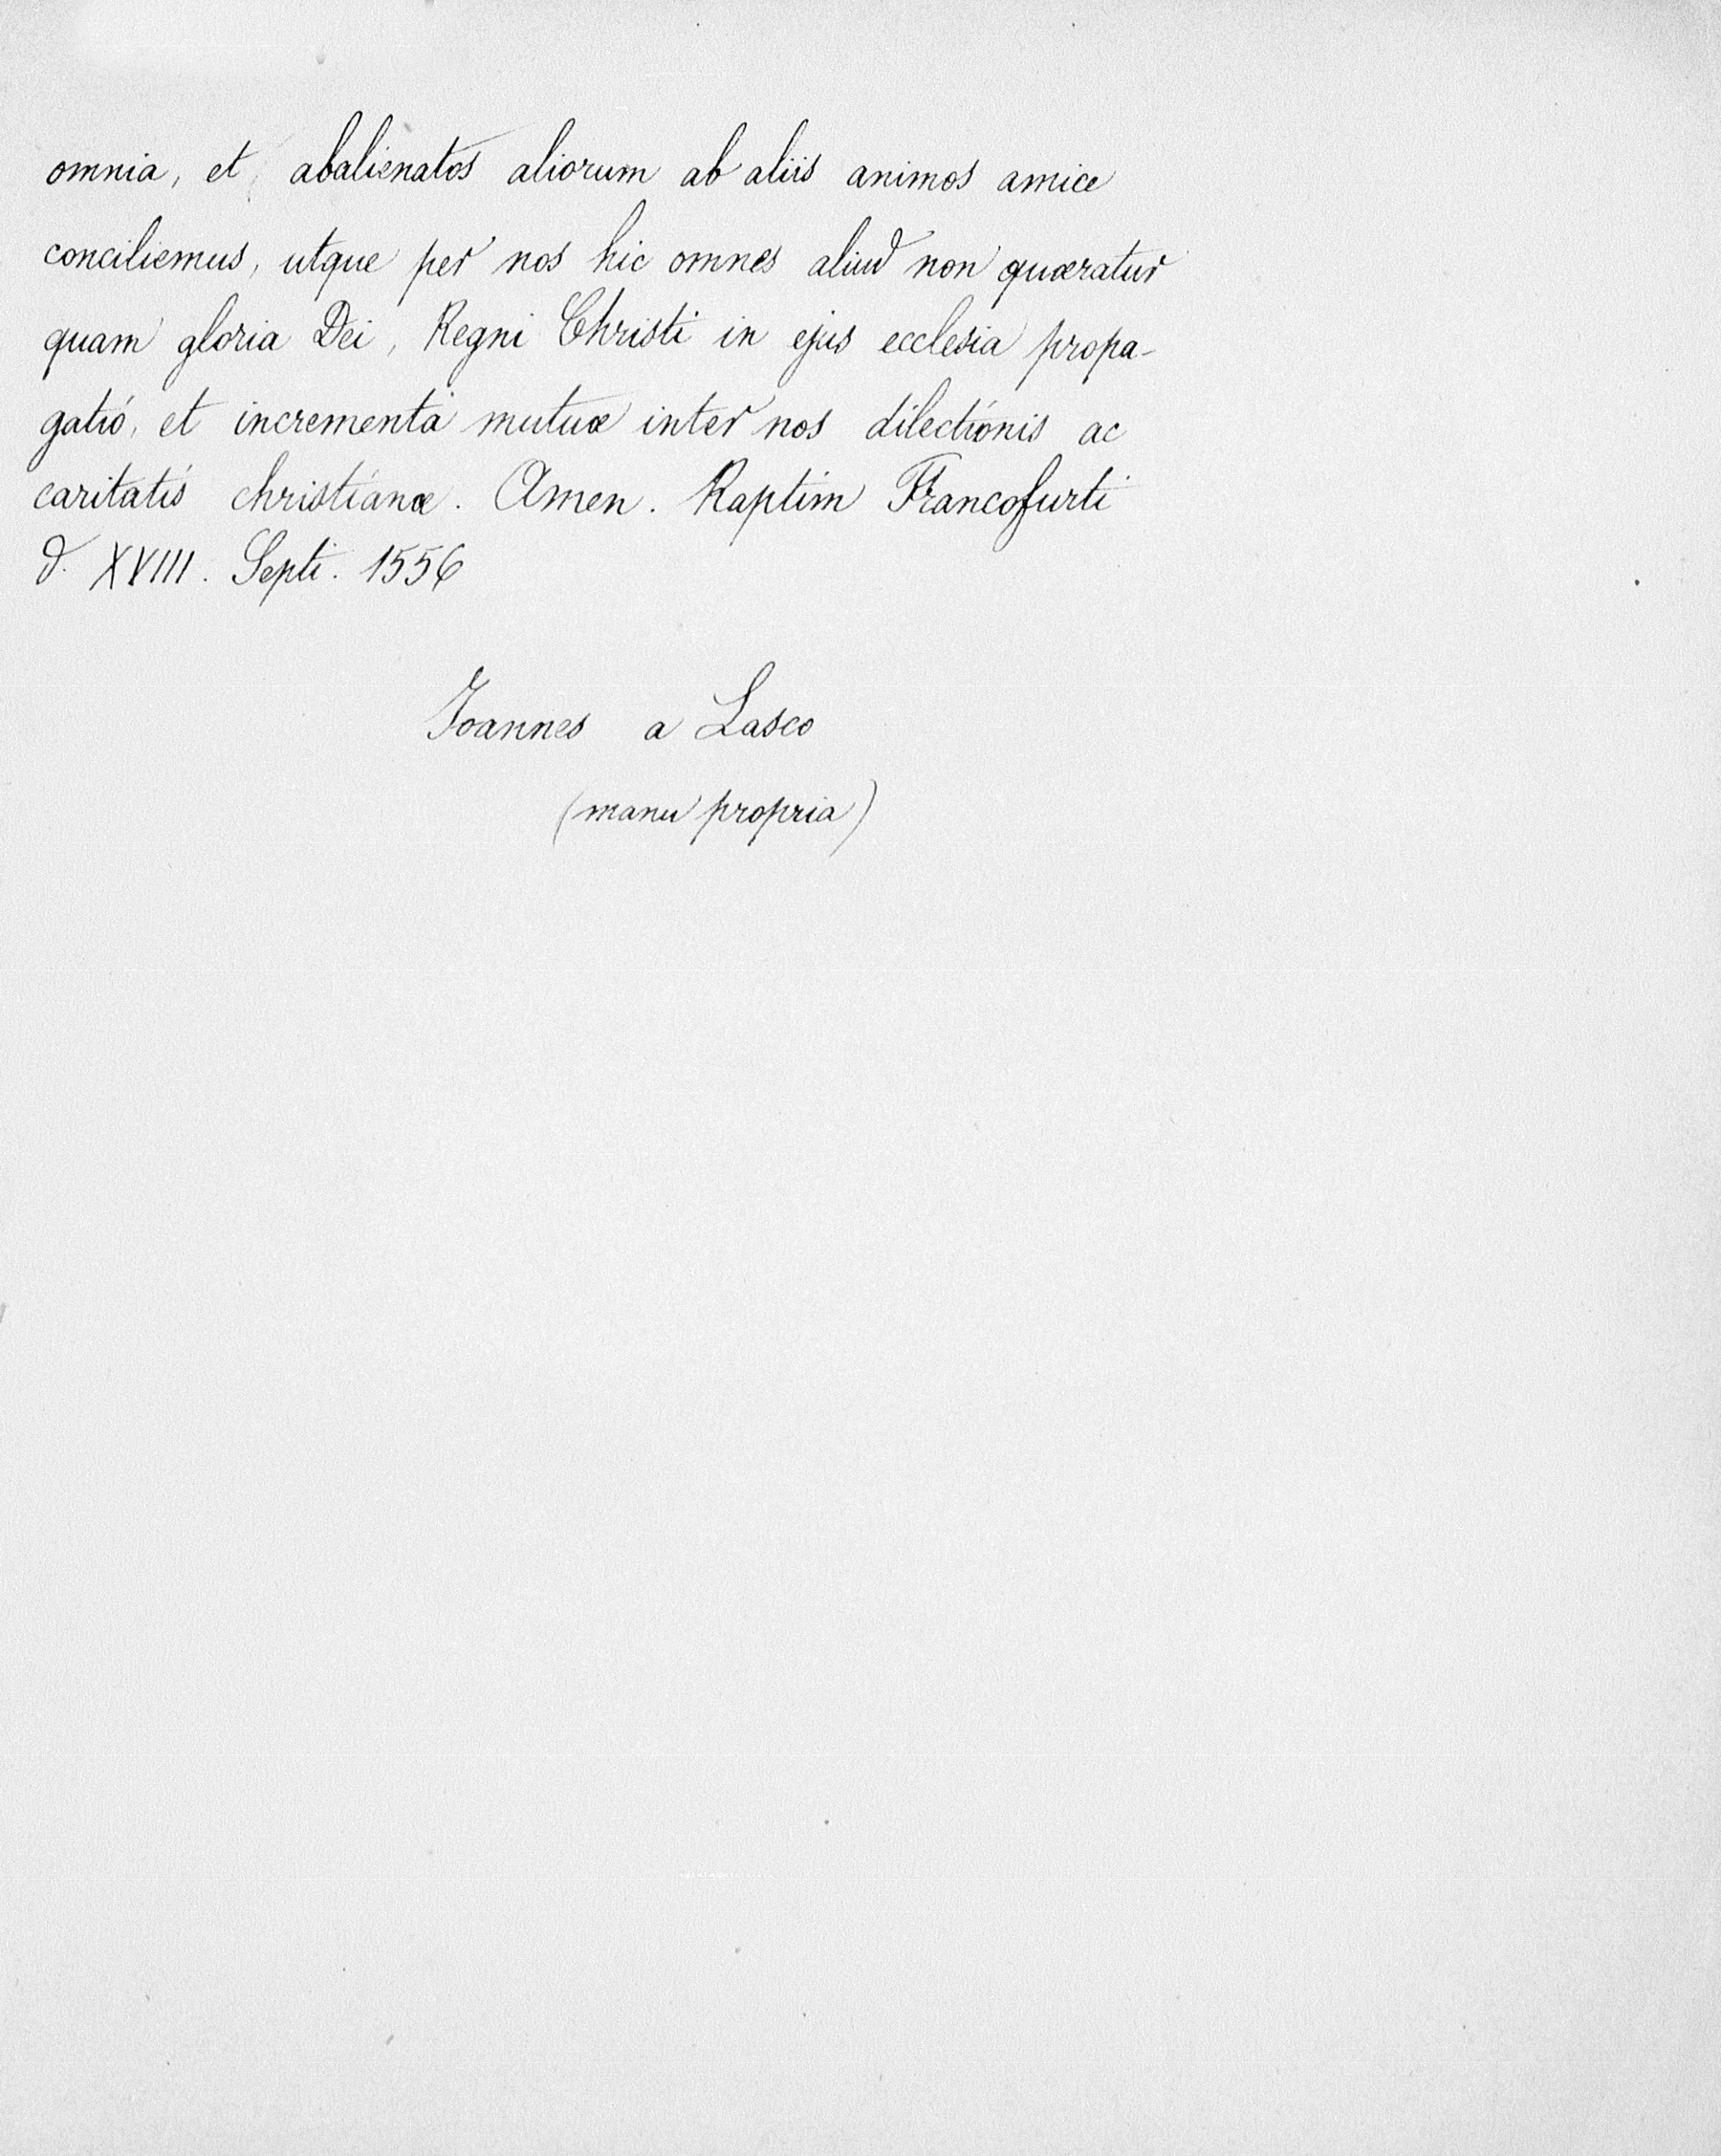 omnia, et abalienatos aliorum ab aliis animos amice
conciliemus, utque per nos hic omnes aliud non quæratur
quam gloria Dei, Regni Christi in ejus ecclesia propa-
gatio, et incrementa mutuæ inter nos dilectionis ac
caritatis christianæ. Amen. Raptim Francofurti
d. XVIII. Septi. 1556
Joannes a Lasco
(manu propria)